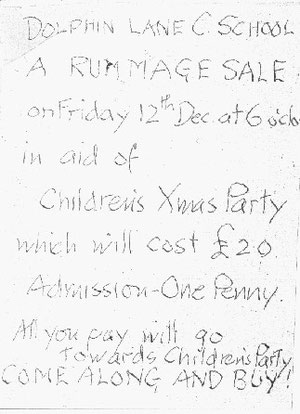 DOLPHIN LANE C. SCHOOL
A RUMMAGE SALE
on Friday 12th Dec. at 6 o'clo
in aid of
Children's Xmas Party
which will cost £20
Admission-One Penny.
All you pay will go
towards Children's Party
COME ALONG AND BUY!